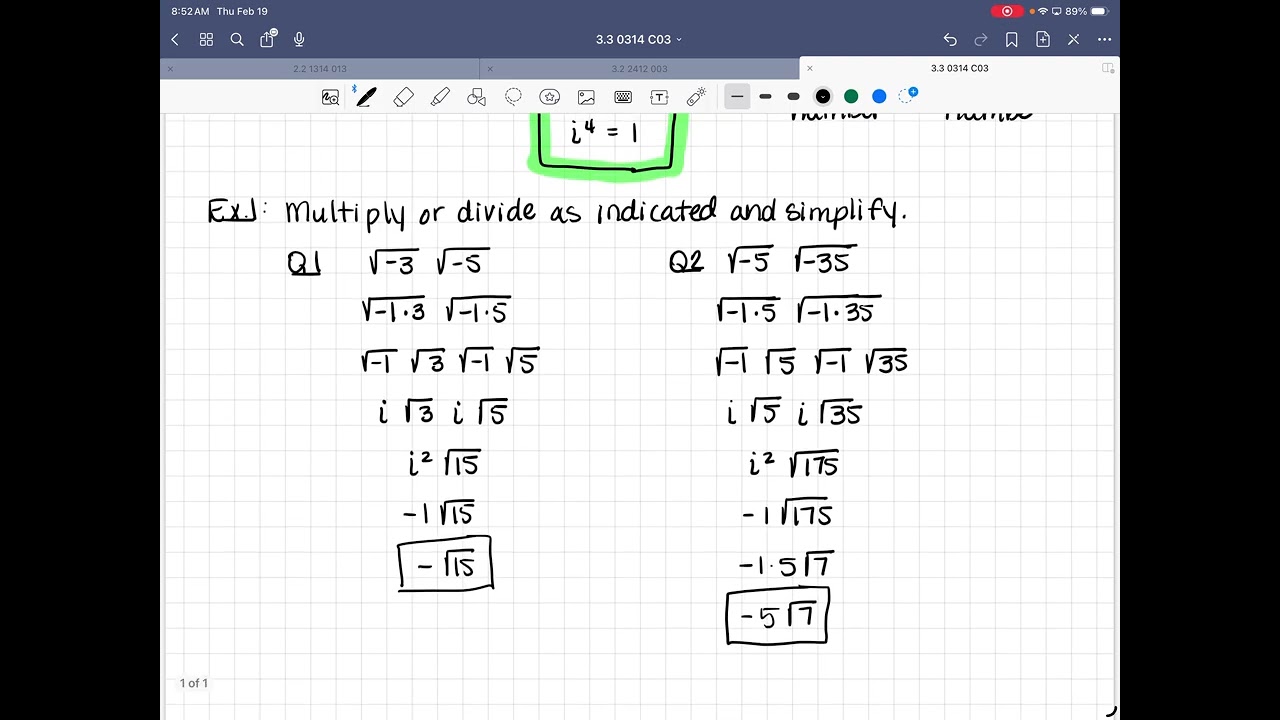 8:52 AM Thu Feb 19
89%
3.3 0314 C03
2.2 1314 013
3.2 2412 003
3.3 0314 C03
i⁴ = 1
number numbe
Ex.1: Multiply or divide as indicated and simplify.
Q1 √-3 √-5
√-1·3 √-1·5
√-1 √3 √-1 √5
i √3 i √5
i² √15
-1√15
-√15
Q2 √-5 √-35
√-1·5 √-1·35
√-1 √5 √-1 √35
i √5 i √35
i² √175
-1√175
-1·5√7
-5√7
1 of 1